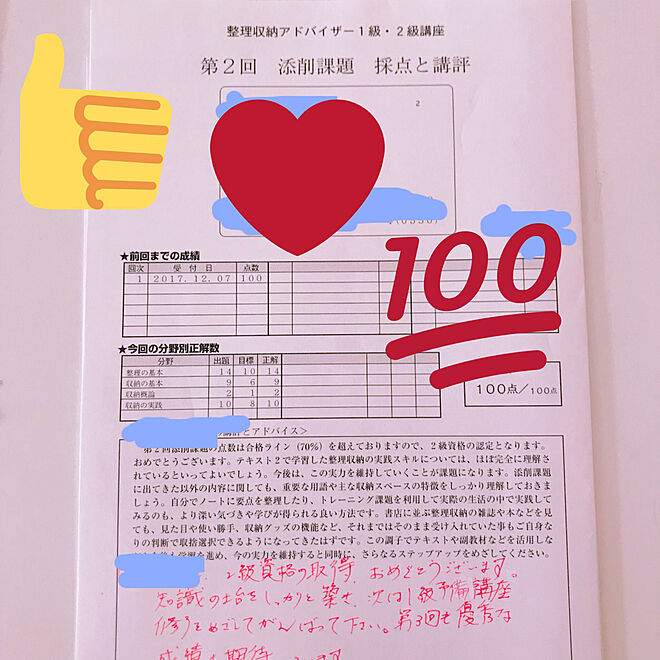 整理収納アドバイザー1級・2級講座
第2回 添削課題 採点と講評
2
100
★前回までの成績
回次 受付日 点数
1 2017.12.07 100
★今回の分野別正解数
分野 出題 目標 正解
整理の基本 14 10 14
収納の基本 9 6 9
収納概論 2 1 2
収納の実践 10 8 10
100点/100点
講評とアドバイス>
第2回添削課題の点数は合格ライン(70%)を超えておりますので、2級資格の認定となります。
おめでとうございます。テキスト2で学習した整理収納の実践スキルについては、ほぼ完全に理解さ
れているといってよいでしょう。今後は、この実力を維持していくことが課題になります。添削課題
に出てきた以外の内容に関しても、重要な用語や主な収納スペースの特徴をしっかり理解しておきま
しょう。自分でノートに要点を整理したり、トレーニング課題を利用して実際の生活の中で実践して
みるのも、より深い気づきや学びが得られる良い方法です。書店に並ぶ整理収納の雑誌や本などを見
ても、見た目や使い勝手、収納グッズの機能など、それまではそのまま受け入れていた事もご自身な
りの判断で取捨選択できるようになってきたはずです。この調子でテキストや副教材などを活用しな
を進め、今の実力を維持すると同時に、さらなるステップアップをめざしてください。
2級資格の取得、おめでとうございます。
知識の土台をしっかりと築き、次は1級予備講座
修了をめざしてがんばって下さい。第3回も優秀な
成績を期待